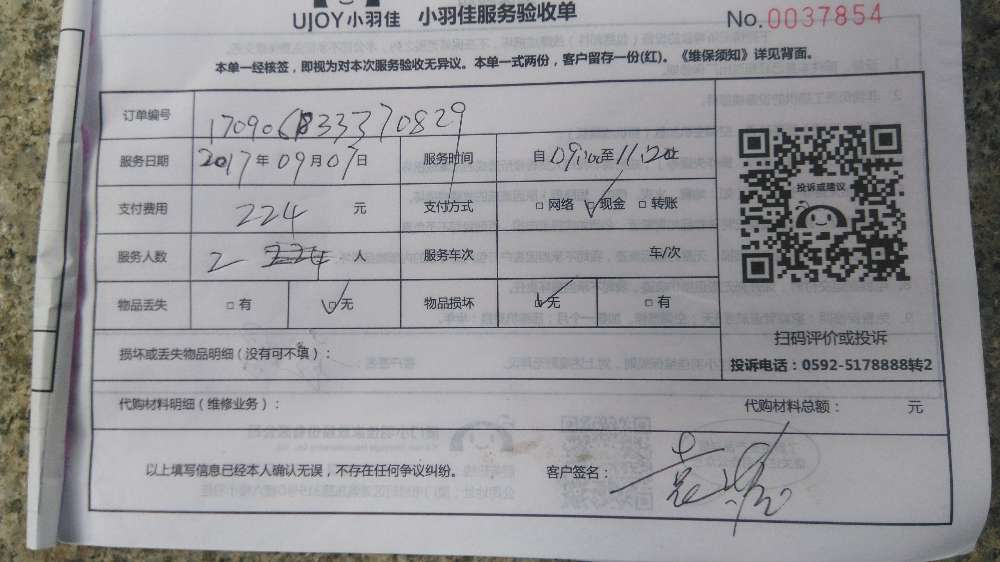 UJOY小羽佳 小羽佳服务验收单
No.0037854
本单一经核签，即视为对本次服务验收无异议。本单一式两份，客户留存一份(红)。《维保须知》详见背面。
订单编号 170906 333370829
服务日期 2017年09月07日 服务时间 自09:00至11:20处
支付费用 224 元 支付方式 □网络 □现金 □转账
服务人数 2 人 服务车次 车/次
物品丢失 □有 □无 物品损坏 □无 □有
投诉或建议
扫码评价或投诉
投诉电话：0592-5178888转2
损坏或丢失物品明细（没有可不填）：
代购材料明细（维修业务）： 代购材料总额： 元
以上填写信息已经本人确认无误，不存在任何争议纠纷。 客户签名：